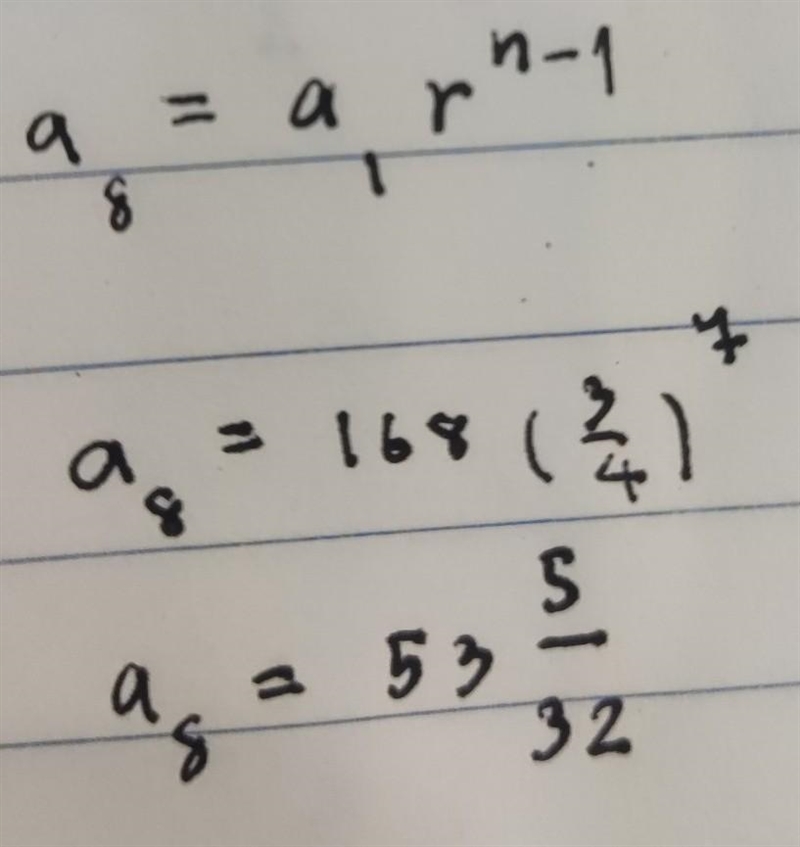 a₈ = a₁ rⁿ⁻¹
a₈ = 168 (3/4)⁷
a₈ = 53 5/32